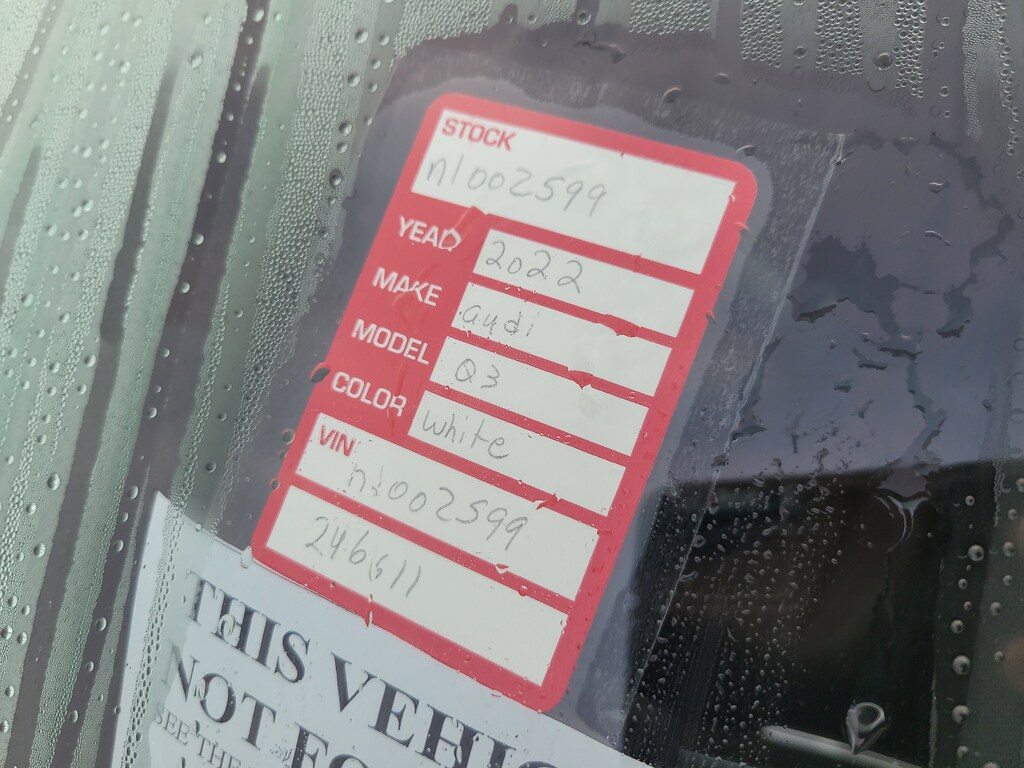 STOCK
n1002599
YEAR 2022
MAKE audi
MODEL Q3
COLOR white
VIN
n1002599
246611
THIS VEHIC
NOT FO
SEE THE